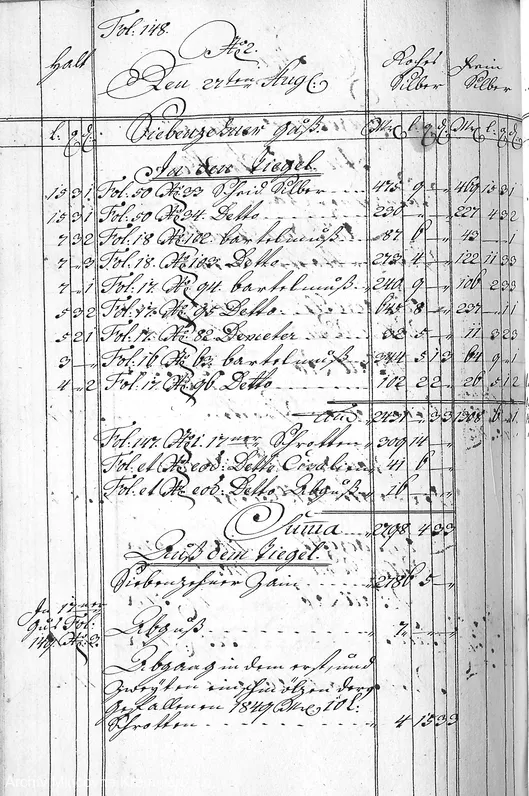 Fol: 148.
No 2.
Halt
Den 27ten Aug:
Rohes Silber
Fein Silber
l: q d:
Siebenzehner Guß.
Mr l: q d: Mr l: q d:
In den Tiegel.
15 3 1 Fol: 50 No 33 Scheid Silber 475 9 „ 469 15 3 1
15 3 1 Fol: 50 No 34 Detto 230 „ „ 227 4 3 2
7 3 2 Fol: 18 No 102 bartelmuß 87 6 „ 43 „ „ 1
7 „ 3 Fol: 18 No 103 Detto 273 4 „ 122 11 3 3
7 „ 1 Fol: 17 No 94 bartelmuß 240 9 „ 106 2 3 3
5 3 2 Fol: 17 No 95 Detto 645 8 „ 237 „ 1 1
5 2 1 Fol: 17 No 82 Demeter 33 5 „ 11 3 2 3
3 „ Fol: 16 No 63 bartelmuß 344 5 1 3 64 9 „ 1
4 „ 2 Fol: 17 No 96 Detto 102 2 2 „ 26 5 1 2
2431 „ 3 3 1308 6 „ 1
Fol: 147 No 1 17ner Schrotten 309 14 „
Fol: et No eod: Detto 41 6 „
Fol: et No eod: Detto Abguß 16 „
Suma 2798 4 3 3
Auß dem Tiegel.
Siebenzehner Zain 2786 5 „
In 17ner
Guß Fol:
149 No 3
Abguß 7 „
Abgang in dem erst, und
zweyten einschmölzen derer
gefallenen 1849 Mr 10 l:
Schrotten 4 15 3 3